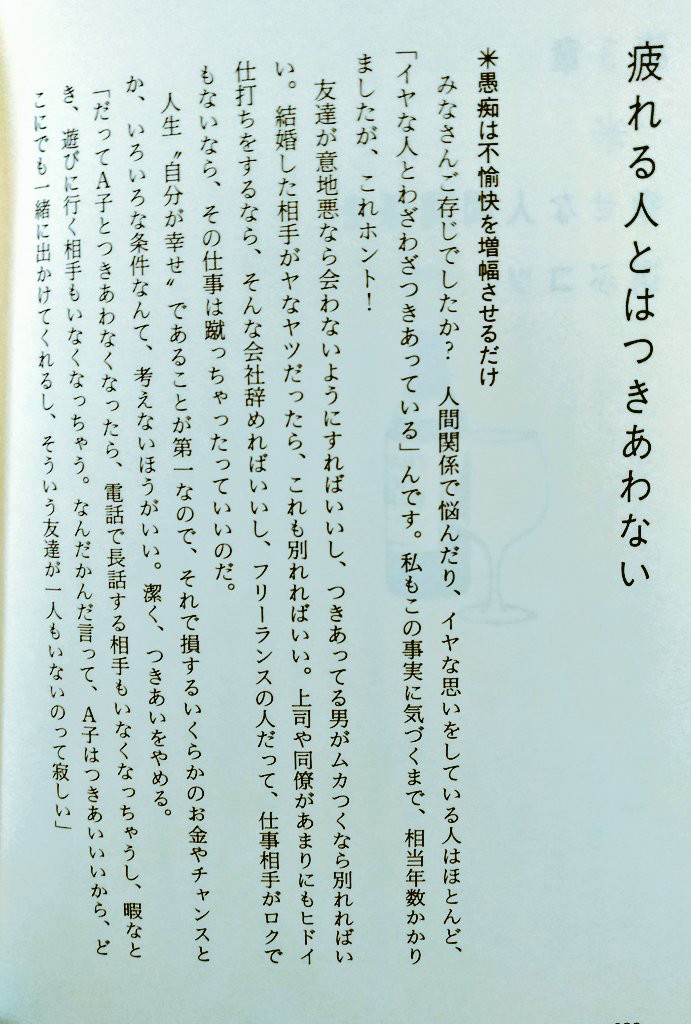 疲れる人とはつきあわない
＊愚痴は不愉快を増幅させるだけ
みなさんご存じでしたか？　人間関係で悩んだり、イヤな思いをしている人はほとんど、
「イヤな人とわざわざつきあっている」んです。私もこの事実に気づくまで、相当年数かかり
ましたが、これホント！
友達が意地悪なら会わないようにすればいいし、つきあってる男がムカつくなら別れればい
い。結婚した相手がヤなヤツだったら、これも別れればいい。上司や同僚があまりにもヒドイ
仕打ちをするなら、そんな会社辞めればいいし、フリーランスの人だって、仕事相手がロクで
もないなら、その仕事は蹴っちゃったっていいのだ。
人生〝自分が幸せ〟であることが第一なので、それで損するいくらかのお金やチャンスと
か、いろいろな条件なんて、考えないほうがいい。潔く、つきあいをやめる。
「だってA子とつきあわなくなったら、電話で長話する相手もいなくなっちゃうし、暇なと
き、遊びに行く相手もいなくなっちゃう。なんだかんだ言って、A子はつきあいいいから、ど
こにでも一緒に出かけてくれるし、そういう友達が一人もいないのって寂しい」